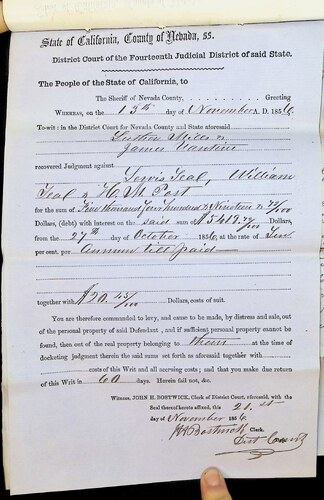 State of California, County of Nevada, ss.
District Court of the Fourteenth Judicial District of said State.
The People of the State of California, to
The Sheriff of Nevada County, Greeting
WHEREAS, on the 13th day of November A. D. 1856
To-wit: in the District Court for Nevada County and State aforesaid
Luther Mills &
James
recovered Judgment against Lewis Teal, William
Teal & H. M. Post
for the sum of Five thousand four hundred & Nineteen & 72/100
Dollars, (debt) with interest on the said sum of $5419 72/100 Dollars,
from the 27th day of October 1856, at the rate of Ten
per cent. per Annum till paid
together with $20 45/100 Dollars, costs of suit.
You are therefore commanded to levy, and cause to be made, by distress and sale, out
of the personal property of said Defendant , and if sufficient personal property cannot be
found, then out of the real property belonging to them at the time of
docketing judgment therein the said sums set forth as aforesaid together with
costs of this Writ and all accruing costs; and that you make due return
of this Writ in 60 days. Herein fail not, &c.
Witness, JOHN H. BOSTWICK, Clerk of District Court, aforesaid, with the
Seal thereof hereto affixed, this 21st
day of November 1856
JH Bostwick Clerk.
Dist Court